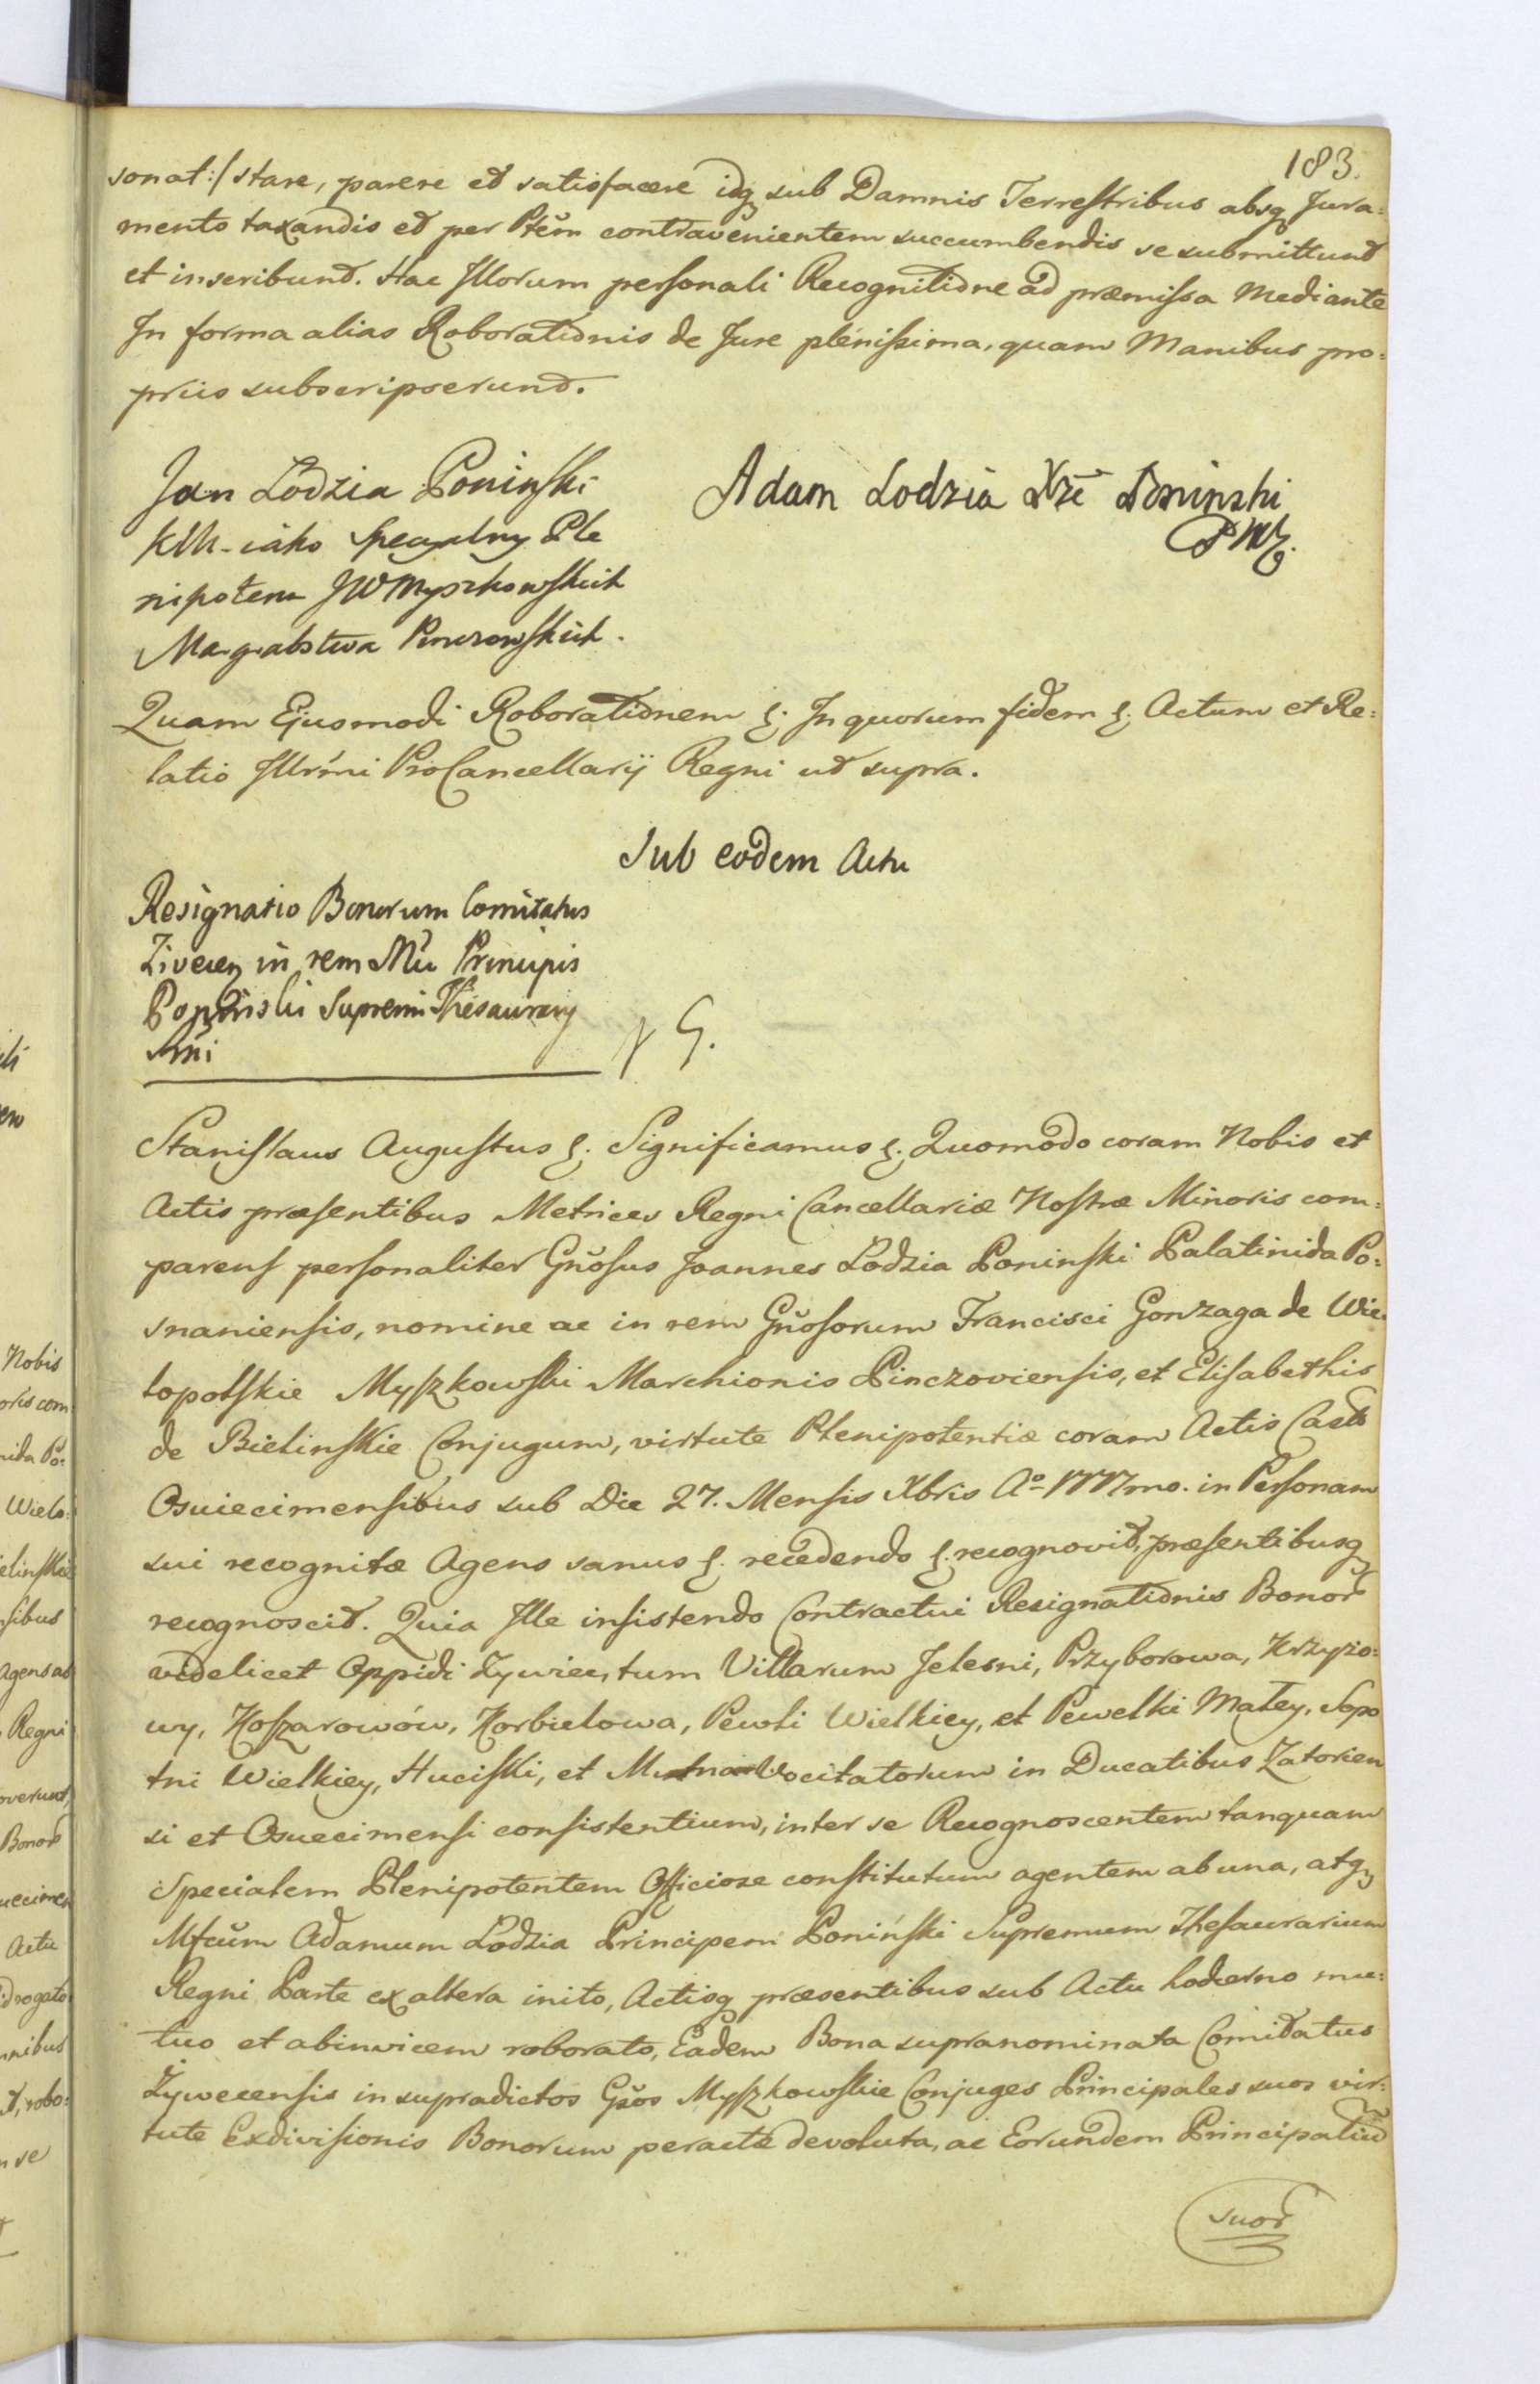 183.
sonat:/ stare, parere et satisfacere idq sub Damnis Terrestribus absq Jura=
mento taxandis et per Ptem contravenientem succumbendis se submittunt
et inscribunt. Hac Illorum personali Recognitione ad præmissa Mediante
In forma alias Roborationis de Jure plenissima, quam Manibus pro=
priis subscripserunt.
Jan Lodzia Poninski
Adam Lodzia Xże Poninski
iáko specyalny Ple
nipotent JW Myszkowskich
Margrabstwa Pinczowskich.
Quam Ejusmodi Roborationem &. In quorum fidem &. Actum et Re=
latio Illrmi ProCancellarij Regni ut supra.
Sub eodem Actu
Resignatio Bonorum Comitatus
Zivecen in rem Mci Principis
Poninski Supremi Thesaurarij
Rni
Stanislaus Augustus &. Significamus &. Quomodo coram Nobis et
Actis præsentibus Metrices Regni Cancellariæ Nostræ Minoris com=
parens personaliter Gnosus Joannes Lodzia Poninski Palatinida Po=
snaniensis, nomine ac in rem Gnosorum Francisci Gonzaga de Wie=
lopolskie Myszkowski Marchionis Pinczoviensis, et Elisabethis
de Bielinskie Conjugum, virtute Plenipotentiæ coram Actis Castr
Osviecimensibus sub Die 27. Mensis Xbris Aº 1777mo. in Personam
sui recognitæ Agens sanus &. recedendo &. recognovit, præsentibusq
recognoscit. Quia Ille insistendo Contractui Resignationis Bonor
videlicet Oppidi Zywiec, tum Villarum Jelesni, Przyborowa, Krzyżo=
wy, Koszarowów, Korbielowa, Pewli Wielkiey, et Pewelki Małey, Sopo
tni Wielkiey, Huciski, et Mutna Vocitatorum in Ducatibus Zatorien
si et Osvecimensi consistentium, inter se Recognoscentem tanquam
Specialem Plenipotentem Officiose constitutum agentem ab una, atq
Mfcum Adamum Lodzia Principem Poniński Supremum Thesaurarium
Regni Parte ex altera inito, Actisq præsentibus sub Actu hodierno mu=
tuo et abinvicem roborato, Eadem Bona supranominata Comitatus
Żywecensis in supradictos Gnos Myszkowskie Conjuges Principales suos vir=
tute Exdivisionis Bonorum peractæ devoluta, ac Eorundem Principaliu
suor